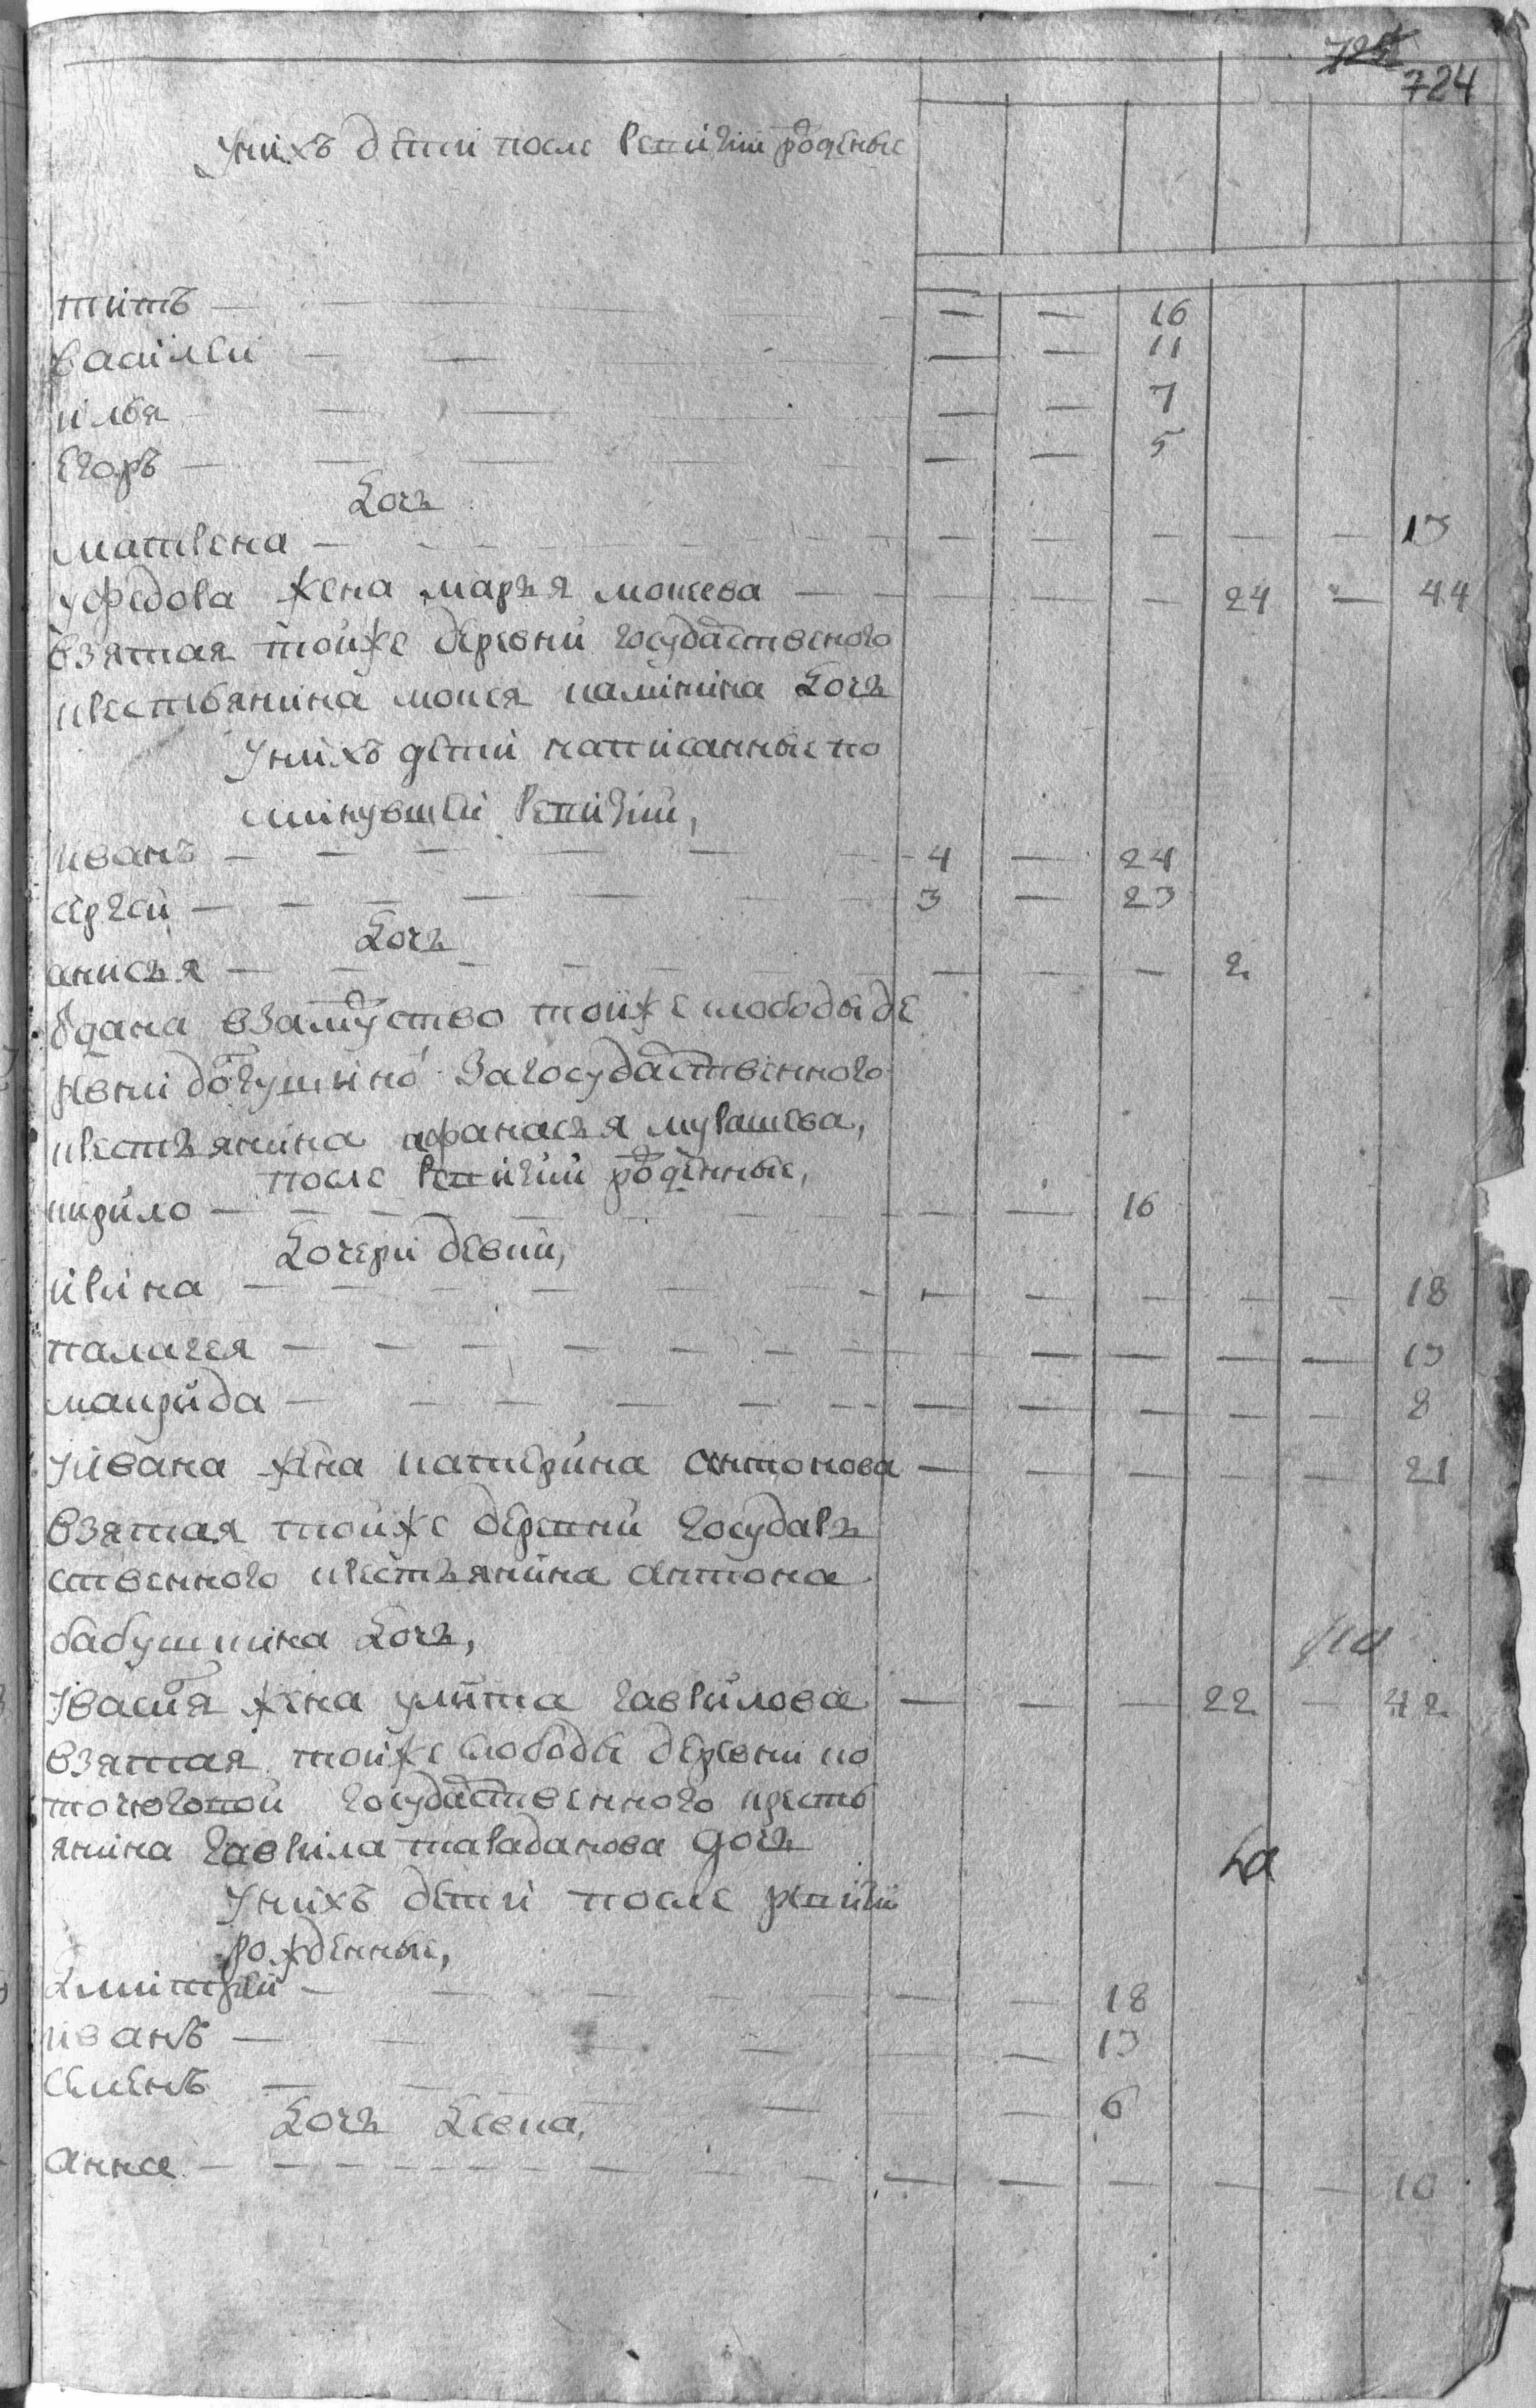 724
У нихъ дети после ревизии рожденые
титъ — — — 16
василей — — — 11
илья — — — 7
егоръ — — — 5
Дочь
матрена — — — — — — 13
у федора жена марья мосеева — — — 24 — 44
взятая тойже деревни государственого
крестьянина мосея калинина дочь
У нихъ дети написанные по
минувшей ревизии,
иванъ — 4 — 24
сергей — 3 — 23
Дочь
анисья — — — — 2
Одана взамужство тойже слободы де
ревни за государственного
крестьянина афанасья мурашева,
после ревизии рожденные,
кирило — — — 16
Дочери девки,
ирина — — — — — — 18
палагея — — — — — — 13
макрида — — — — — — 8
У ивана жена катерина антонова — — — — — 21
взятая тойже деревни государь
ственного крестьянина антона
бабушкина дочь,
У василья жена улита гаврилова — — — 22 — 42
взятая тойже слободы деревни ко
государственного кресть
янина гаврила тараданова дочь
У нихъ дети после ревизии
рожденные,
Дмитрей — — — 18
иванъ — — — 13
семенъ — — — 6
Дочь девка,
анна — — — — — — 10